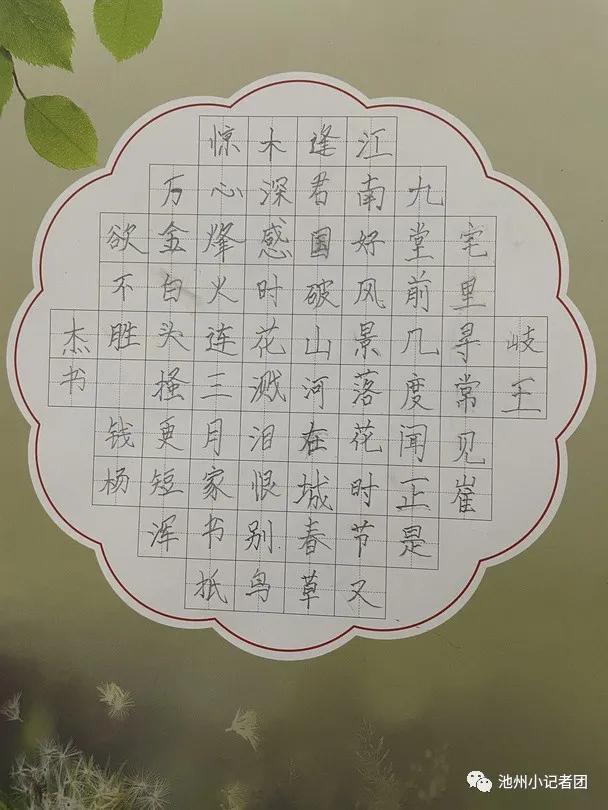 岐王
宅里寻常见崔
九堂前几度闻正是
江南好风景落花时节又
逢君国破山河在城春草
木深感时花溅泪恨别鸟
惊心烽火连三月家书抵
万金白头搔更短浑
欲不胜 钱杨
杰书
池州小记者团